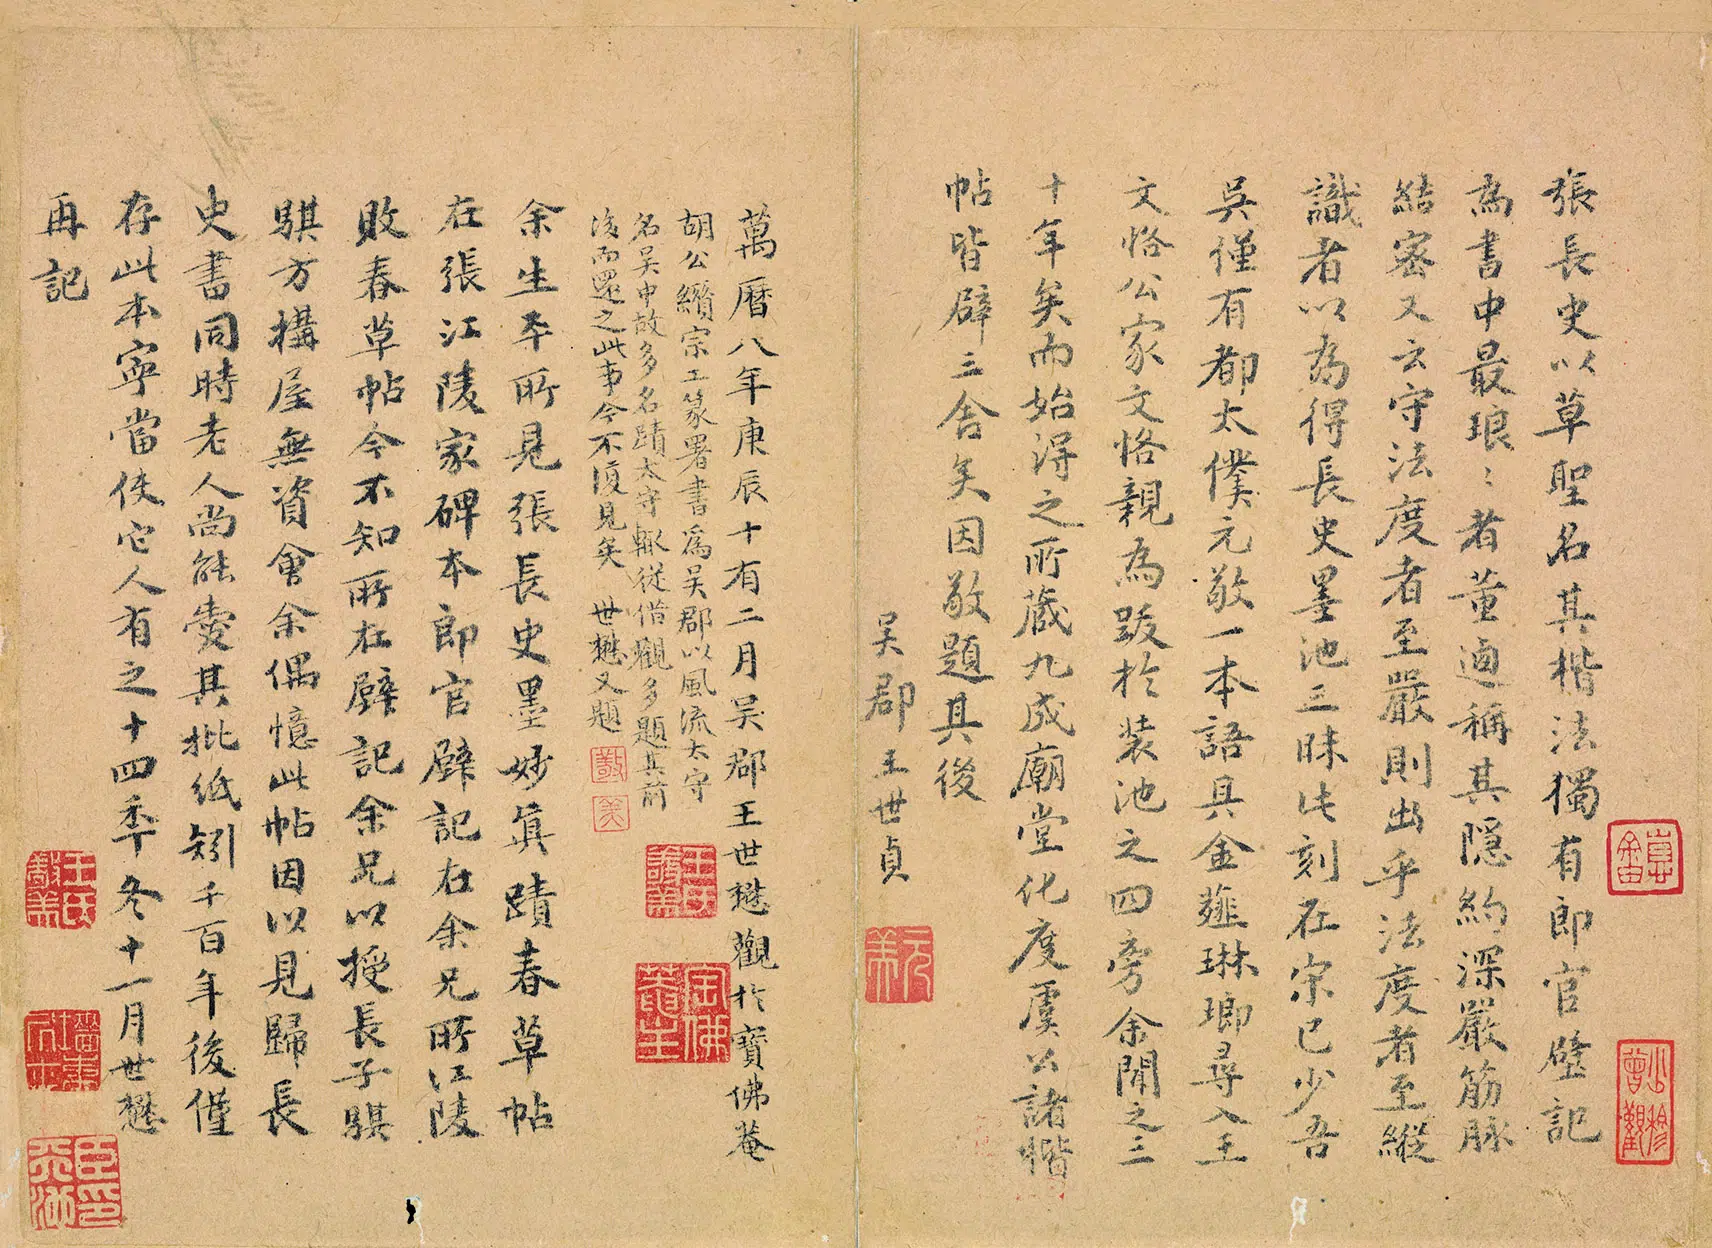 張長史以草聖名其楷法獨有郎官壁記
為書中最琅〻者董逌稱其隠約深嚴筋脉
結密又云守法度者至嚴則出乎法度者至縱
識者以為得長史墨池三昧此刻在宗已少吾
吳僅有都太僕元敬一本語具金薤琳瑯尋入王
文恪公家文恪親為跋於裝池之四旁余聞之三
十年矣而始得之所藏九成廟堂化度虞公諸楷
帖皆辟三舎矣因敬題其後
吴郡王世貞
萬曆八年庚辰十有二月吴郡王世懋觀於寶佛菴
胡公纘宗工篆署書為吴郡以風流太守
名吴中故多名蹟太守輙從借觀多題其前
後而還之此事今不復見矣 世懋又題
余生平所見張長史墨妙真蹟春草帖
在張江陵家碑本郎官壁記在余兄所江陵
敗春草帖今不知所在壁記余兄以授長子騏
騏方搆屋無資會余偶憶此帖因以見歸長
史書同時老人尚能賣其批紙矧千百年後僅
存此本寧當使它人有之十四季冬十一月世懋
再記
敬
美
元美
王氏敬美